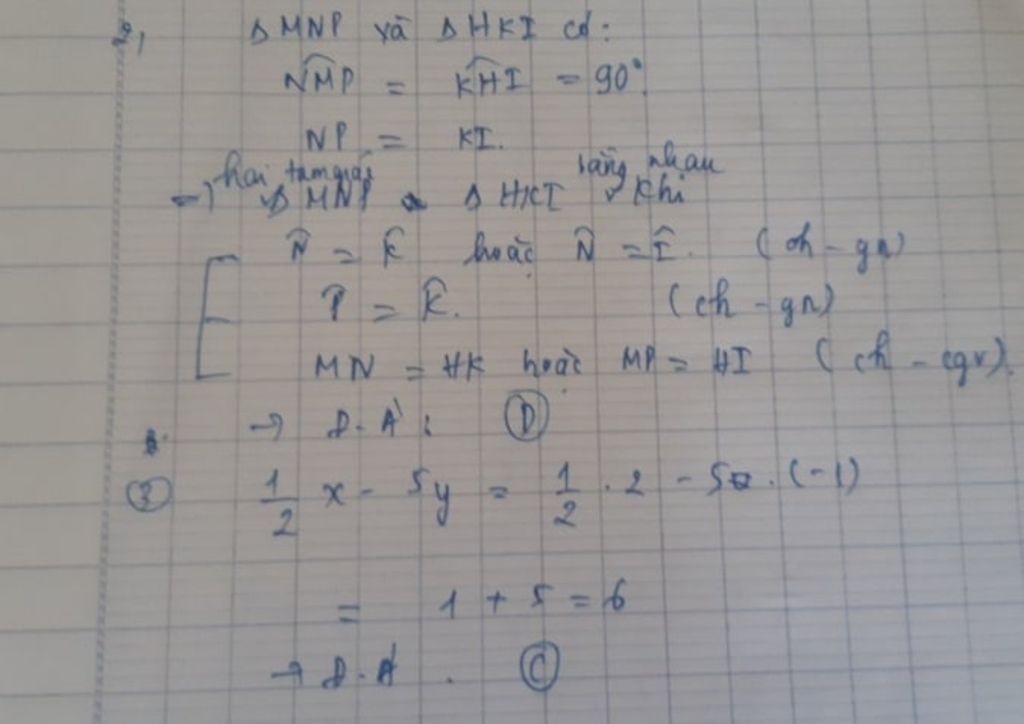 2, Δ MNP và Δ HKI có:
NMP = KHI = 90°
NP = KI.
hai tam giác bằng nhau
=> Δ MNP Δ HKI khi
N̂ = K̂ hoặc N̂ = Î. (ch - gn)
P̂ = K̂. (ch - gn)
MN = HK hoặc MP = HI (ch - cgv).
→ Đ.A : D
3 1/2 x - 5y = 1/2 . 2 - 5 . (-1)
= 1 + 5 = 6
→ Đ.A . C